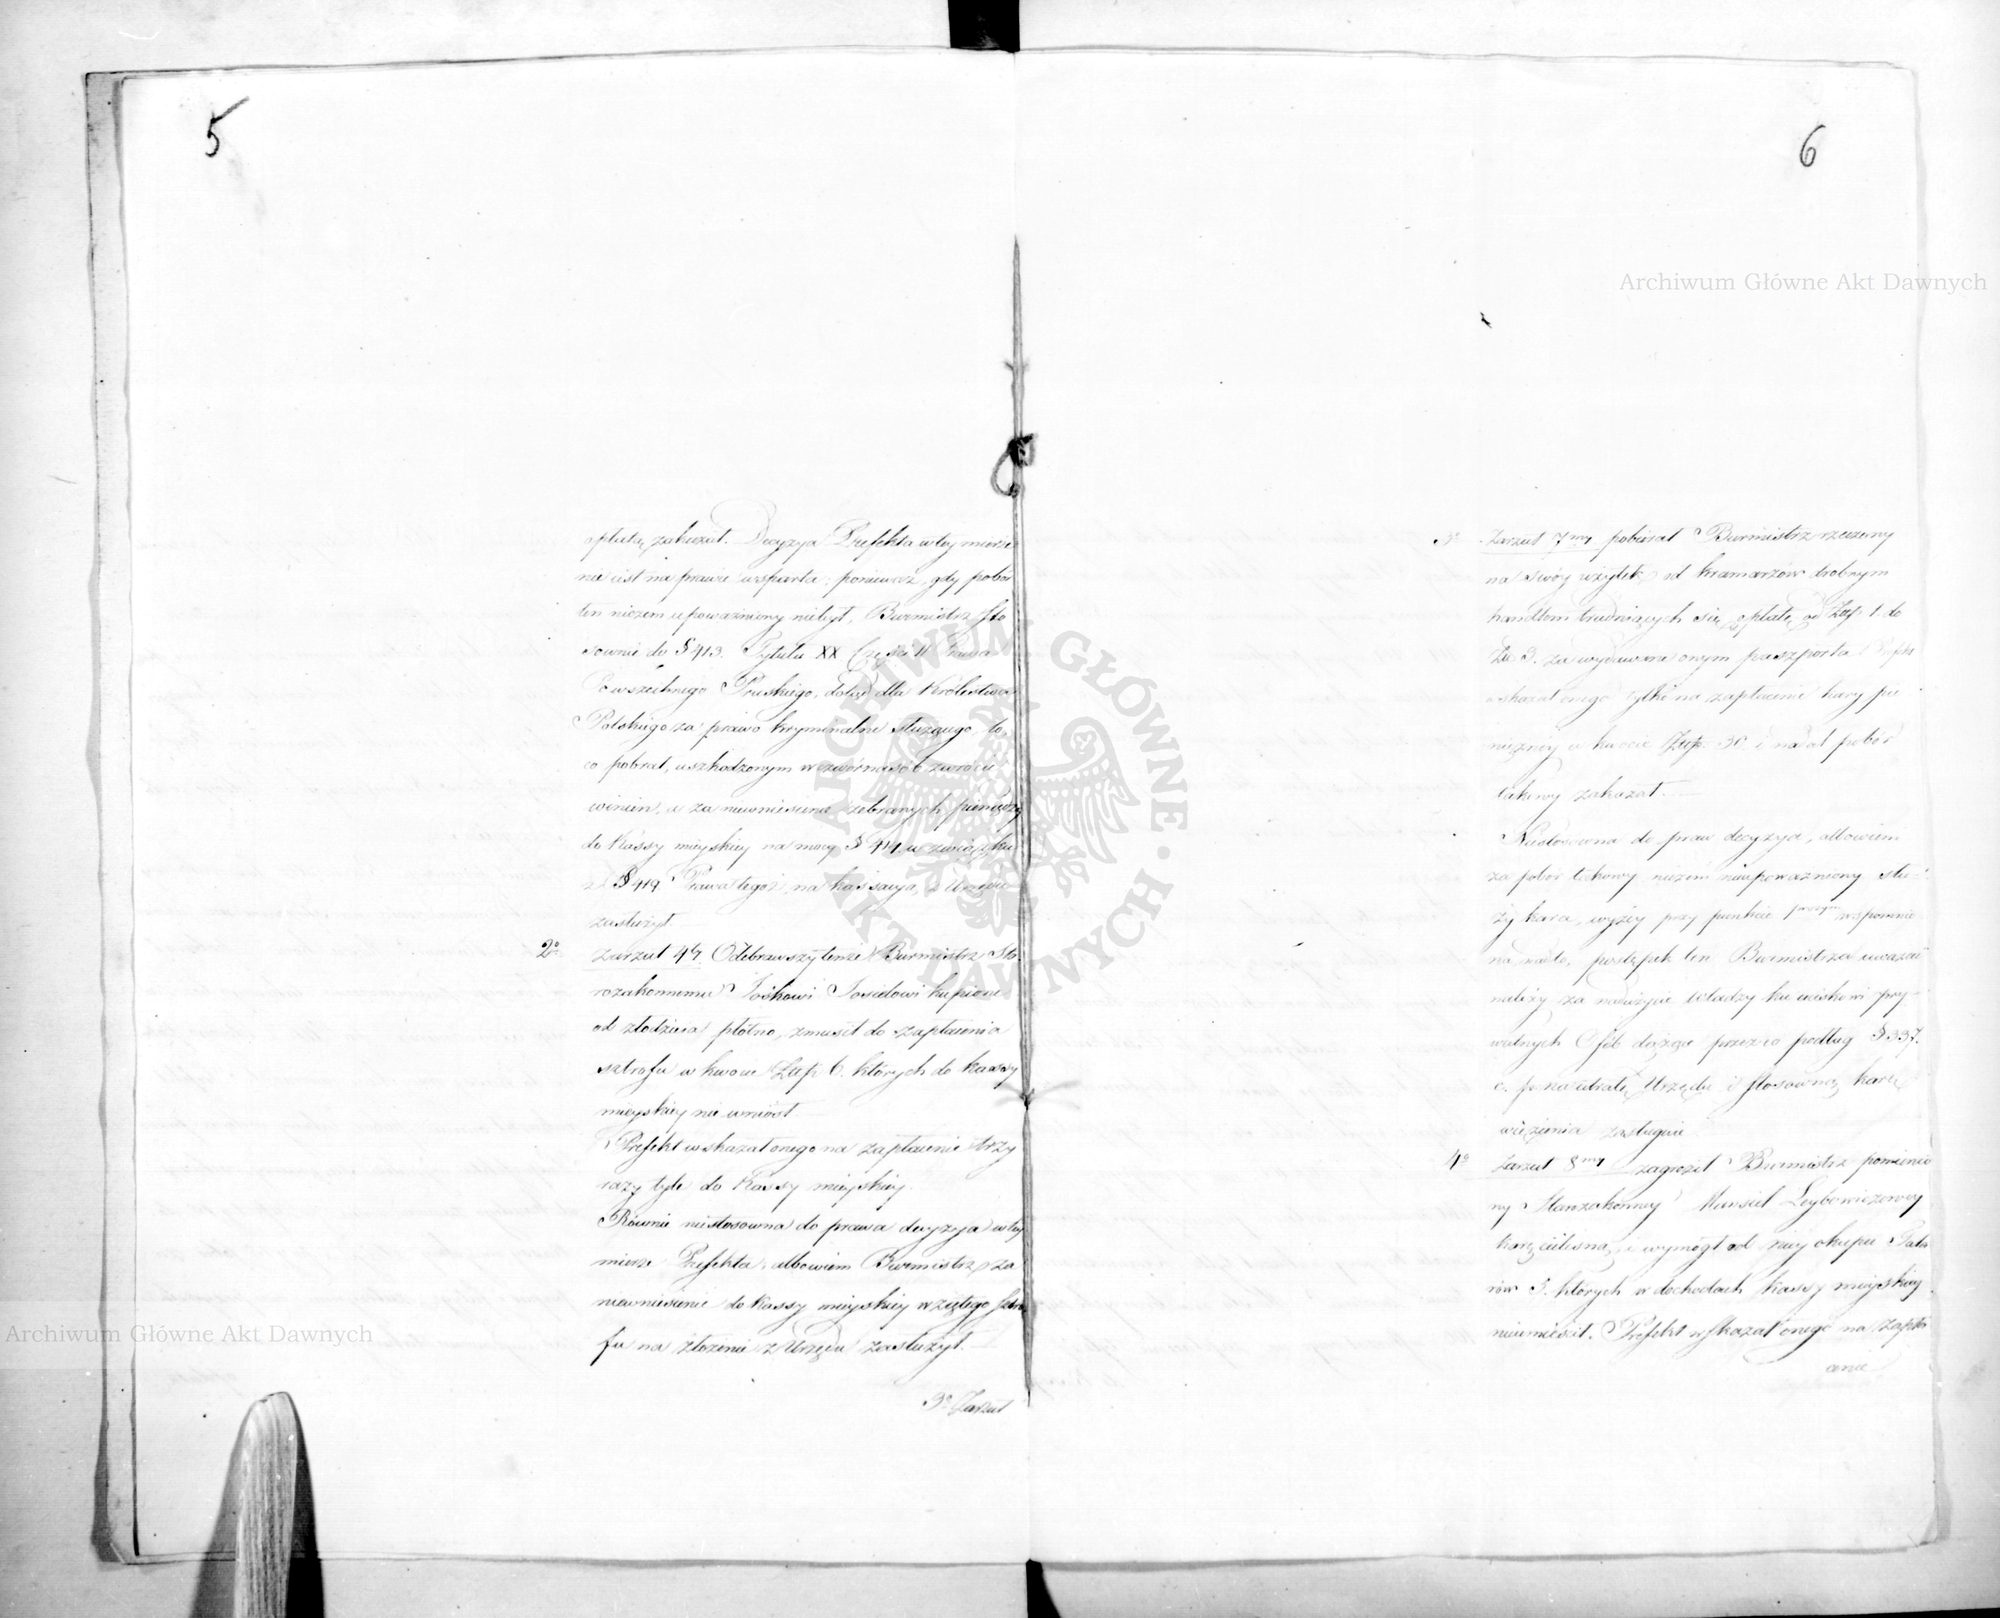 5
opłatę zakazał. Decyzya Prefekta w tey mierze
nie iest na prawie wsparta; ponieważ, gdy pobór
ten niczem upoważniony niebył, Burmistrz sto
sownie do § 413. Tytułu XX Części II Prawa
Powszechnego Pruskiego, dotąd dla Królestwa
Polskiego za prawo kryminalne służącego, to,
co pobrał, uszkodzonym w czwórnasób zwrócić
winien, a za niewniesienie zebranych pieniędzy
do Kassy mieyskiey na mocy § 414 w związku
z § 419 Prawa tegoż, na kassacyą z Urzędu
zasłużył.
2o Zarzut 4ty Odebrawszy tenże Burmistrz Sta
rozakonnemu Joskowi Josielowi kupione
od złodzieia płótno, zmusił do zapłacenia
sztrofu w kwocie Złtp 6. których do kassy
mieyskiey nie wniósł.
Prefekt wskazał onego na zapłacenie trzy
razy tyle do Kassy mieyskiey.
Równie niestosowna do prawa decyzya w tey
mierze Prefekta, albowiem Burmistrz za
niewniesienie do Kassy mieyskiey wziętego sztro
fu na złożenie z Urzędu zasłużył. —
3o Zarzut
6
3o Zarzut 7my pobierał Burmistrz rzeczony
na swóy użytek od kramarzów drobnym
handlem trudniących się opłatę od Złtp. 1. do
Zł. 3. za wydawane onym paszporta Prefekt
wskazał onego tylko na zapłacenie kary pie
niężney w kwocie Złtp. 30. i nadal pobór
takowy zakazał. —
Niestosowna do praw decyzya, albowiem
za pobór takowy niczem nieupoważniony słu
ży kara, wyżey przy punkcie pierwszym wspomnio
na, nadto, postępek ten Burmistrza uważać
należy za nadużycie władzy ku uciskowi pry-
watnych Osób dążące przez co podług § 337.
c. p. na utratę Urzędu i stosowną karę
więzienia zasługuie
4o Zarzut 8my zagroził Burmistrz pomienio
ny Starozakonney Leybowiczowey
karę cielesną, i wymógł od niey okupu Tala
rów 5. których w dochodach Kassy mieyskiey
nieumieścił. Prefekt wskazał onego na zapła
cenie
Archiwum Główne Akt Dawnych
Archiwum Główne Akt Dawnych
ARCHIWUM GŁÓWNE
AKT DAWNYCH